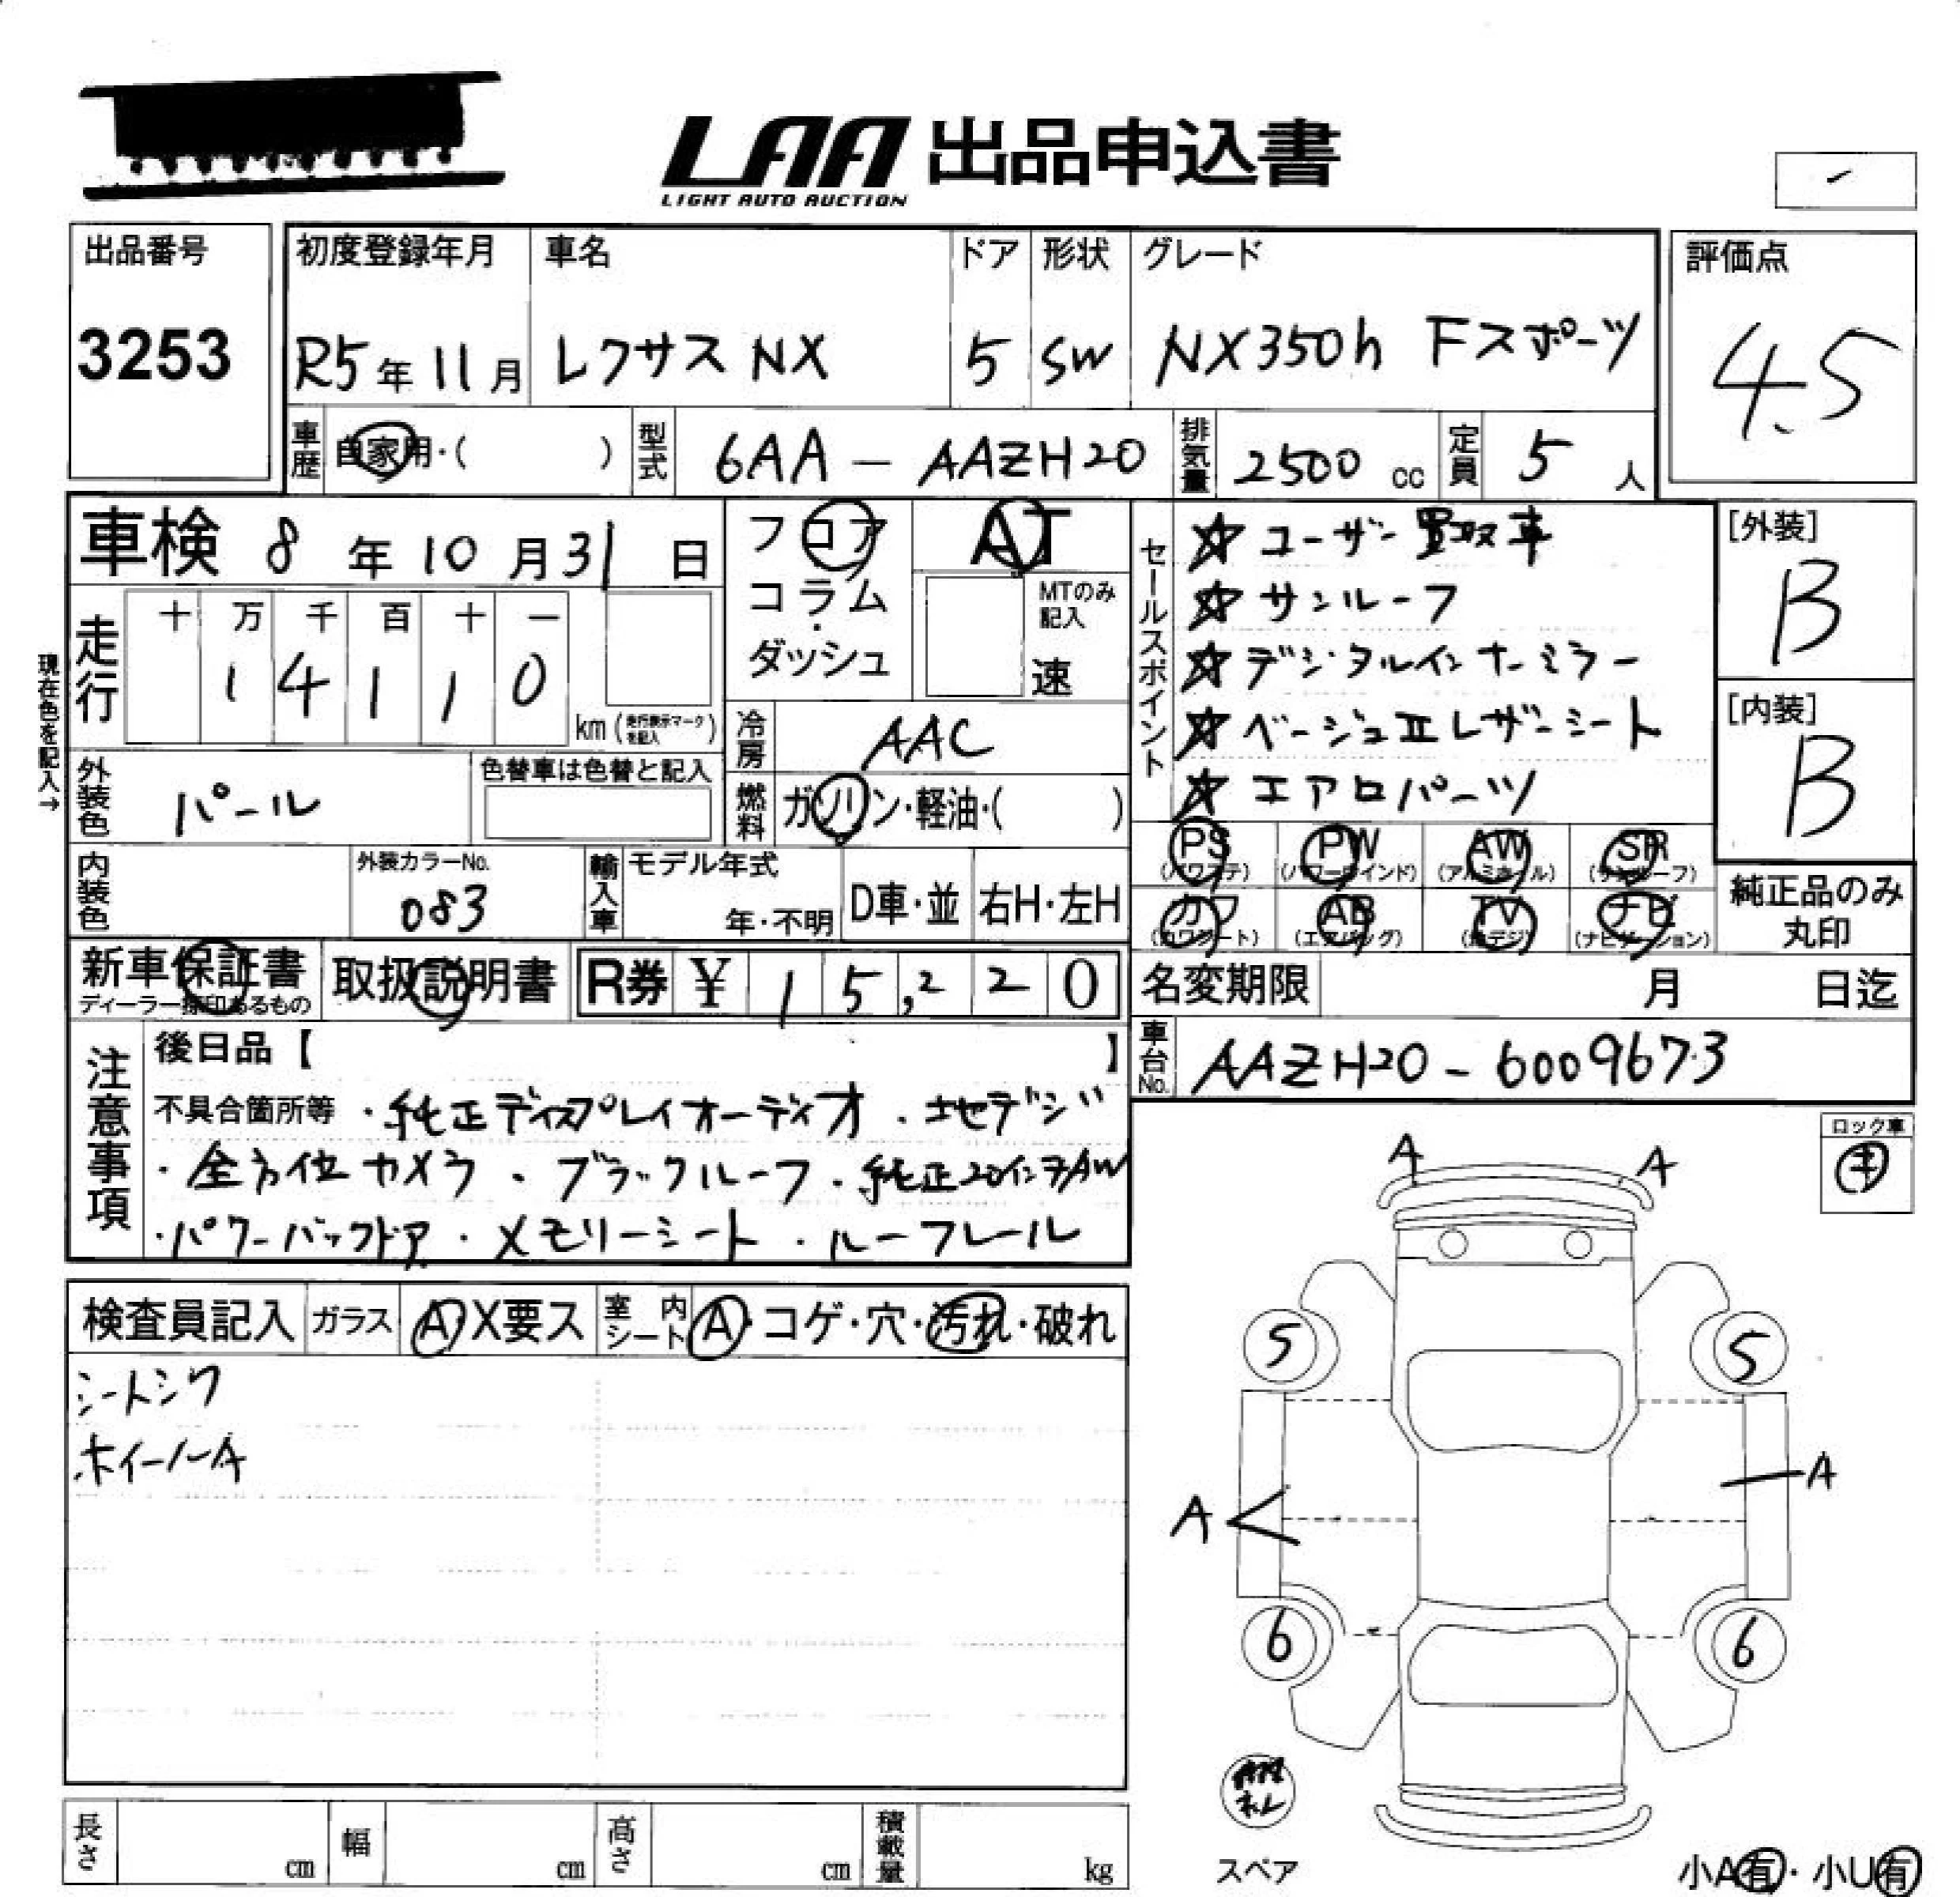 LAA 出品申込書
LIGHT AUTO AUCTION
出品番号
3253
初度登録年月
R5年11月
車名
レクサス NX
ドア
5
形状
SW
グレード
NX350h Fスポーツ
評価点
4.5
車歴 自家用・( )
型式 6AA - AAZH20
排気量 2500 cc
定員 5 人
車検 8年10月31日
フロア
コラム
・
ダッシュ
AT
MTのみ記入
速
セールスポイント
☆ ユーザー買取車
☆ サンルーフ
☆ デジタルインナーミラー
☆ ベージュⅡレザーシート
☆ エアロパーツ
[外装]
B
[内装]
B
現在色を記入→
走行
十 万 千 百 十 一
1 4 1 1 0
km (走行表示マークを記入)
冷房 AAC
外装色 パール
色替車は色替と記入
燃料 ガソリン・軽油・( )
内装色
外装カラーNo.
083
輸入車
モデル年式
年・不明
D車・並
右H・左H
PS (パワステ)
PW (パワーウインド)
AW (アルミホイール)
SR (サンルーフ)
カワ (カワシート)
AB (エアバッグ)
TV (地デジ)
ナビ (ナビゲーション)
純正品のみ
丸印
新車保証書
ディーラー捺印あるもの
取扱説明書
R券 ¥ 15,220
名変期限 月 日迄
車台No. AAZH20-6009673
注意事項
後日品【 】
不具合箇所等 ・純正ディスプレイオーディオ ・地デジ
・全方位カメラ ・ブラックルーフ ・純正20インチAW
・パワーバックドア ・メモリーシート ・ルーフレール
ロック車
キ
検査員記入 ガラス A・X要ス 室内シート A・コゲ・穴・汚れ・破れ
シートシワ
ホイールA
A A
5 5
A A
6 6
スペア
小A有・小U有
長さ cm 幅 cm 高さ cm 積載量 kg